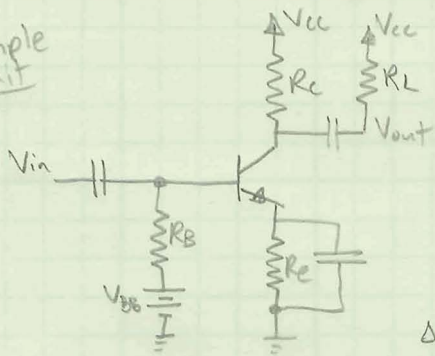 Vcc
Vcc
RC
RL
Vout
Vin
RB
VBB
Re
Δ